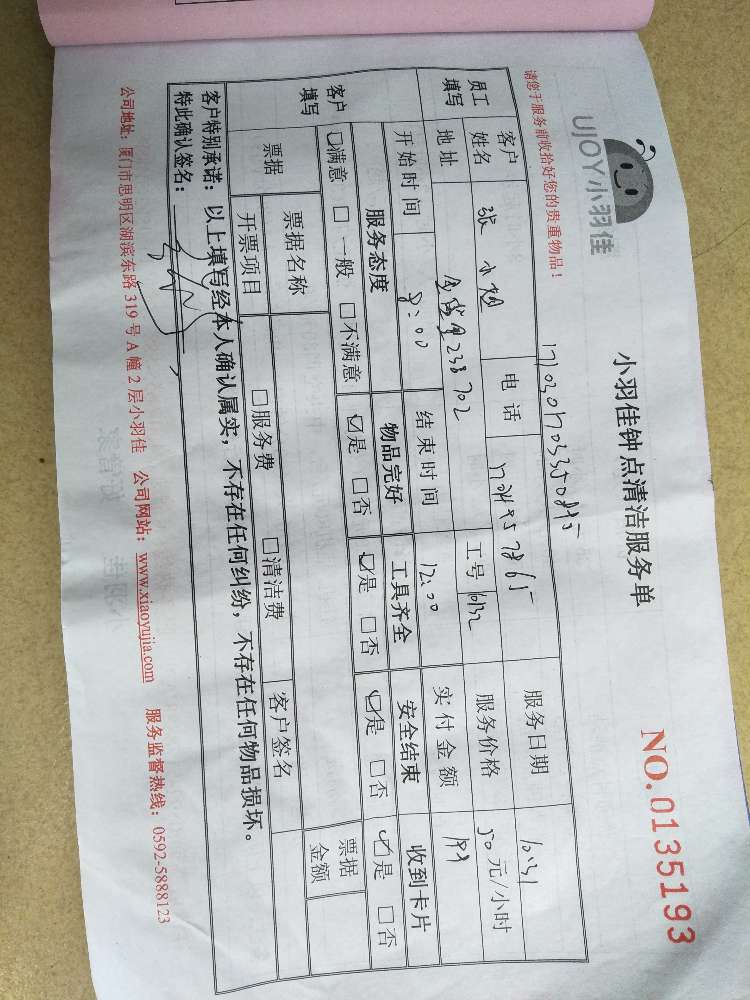 UJOY小羽佳
小羽佳钟点清洁服务单
NO.0135193
请您于服务前收拾好您的贵重物品！
员工填写
客户姓名 张小 电话 工号 1612 服务日期 10.31
服务价格 50元/小时
地址 233 702 实付金额 199
开始时间 8:00 结束时间 12:00
客户填写
服务态度 物品完好 工具齐全 安全结束 收到卡片
☑满意 □一般 □不满意 ☑是 □否 ☑是 □否 ☑是 □否 ☑是 □否
票据 票据名称 客户签名 票据金额
开票项目 □服务费 □清洁费
客户特别承诺：以上填写经本人确认属实，不存在任何纠纷，不存在任何物品损坏。
特此确认签名：
公司地址：厦门市思明区湖滨东路319号A幢2层小羽佳 公司网站：www.xiaoyujia.com 服务监督热线：0592-5888123